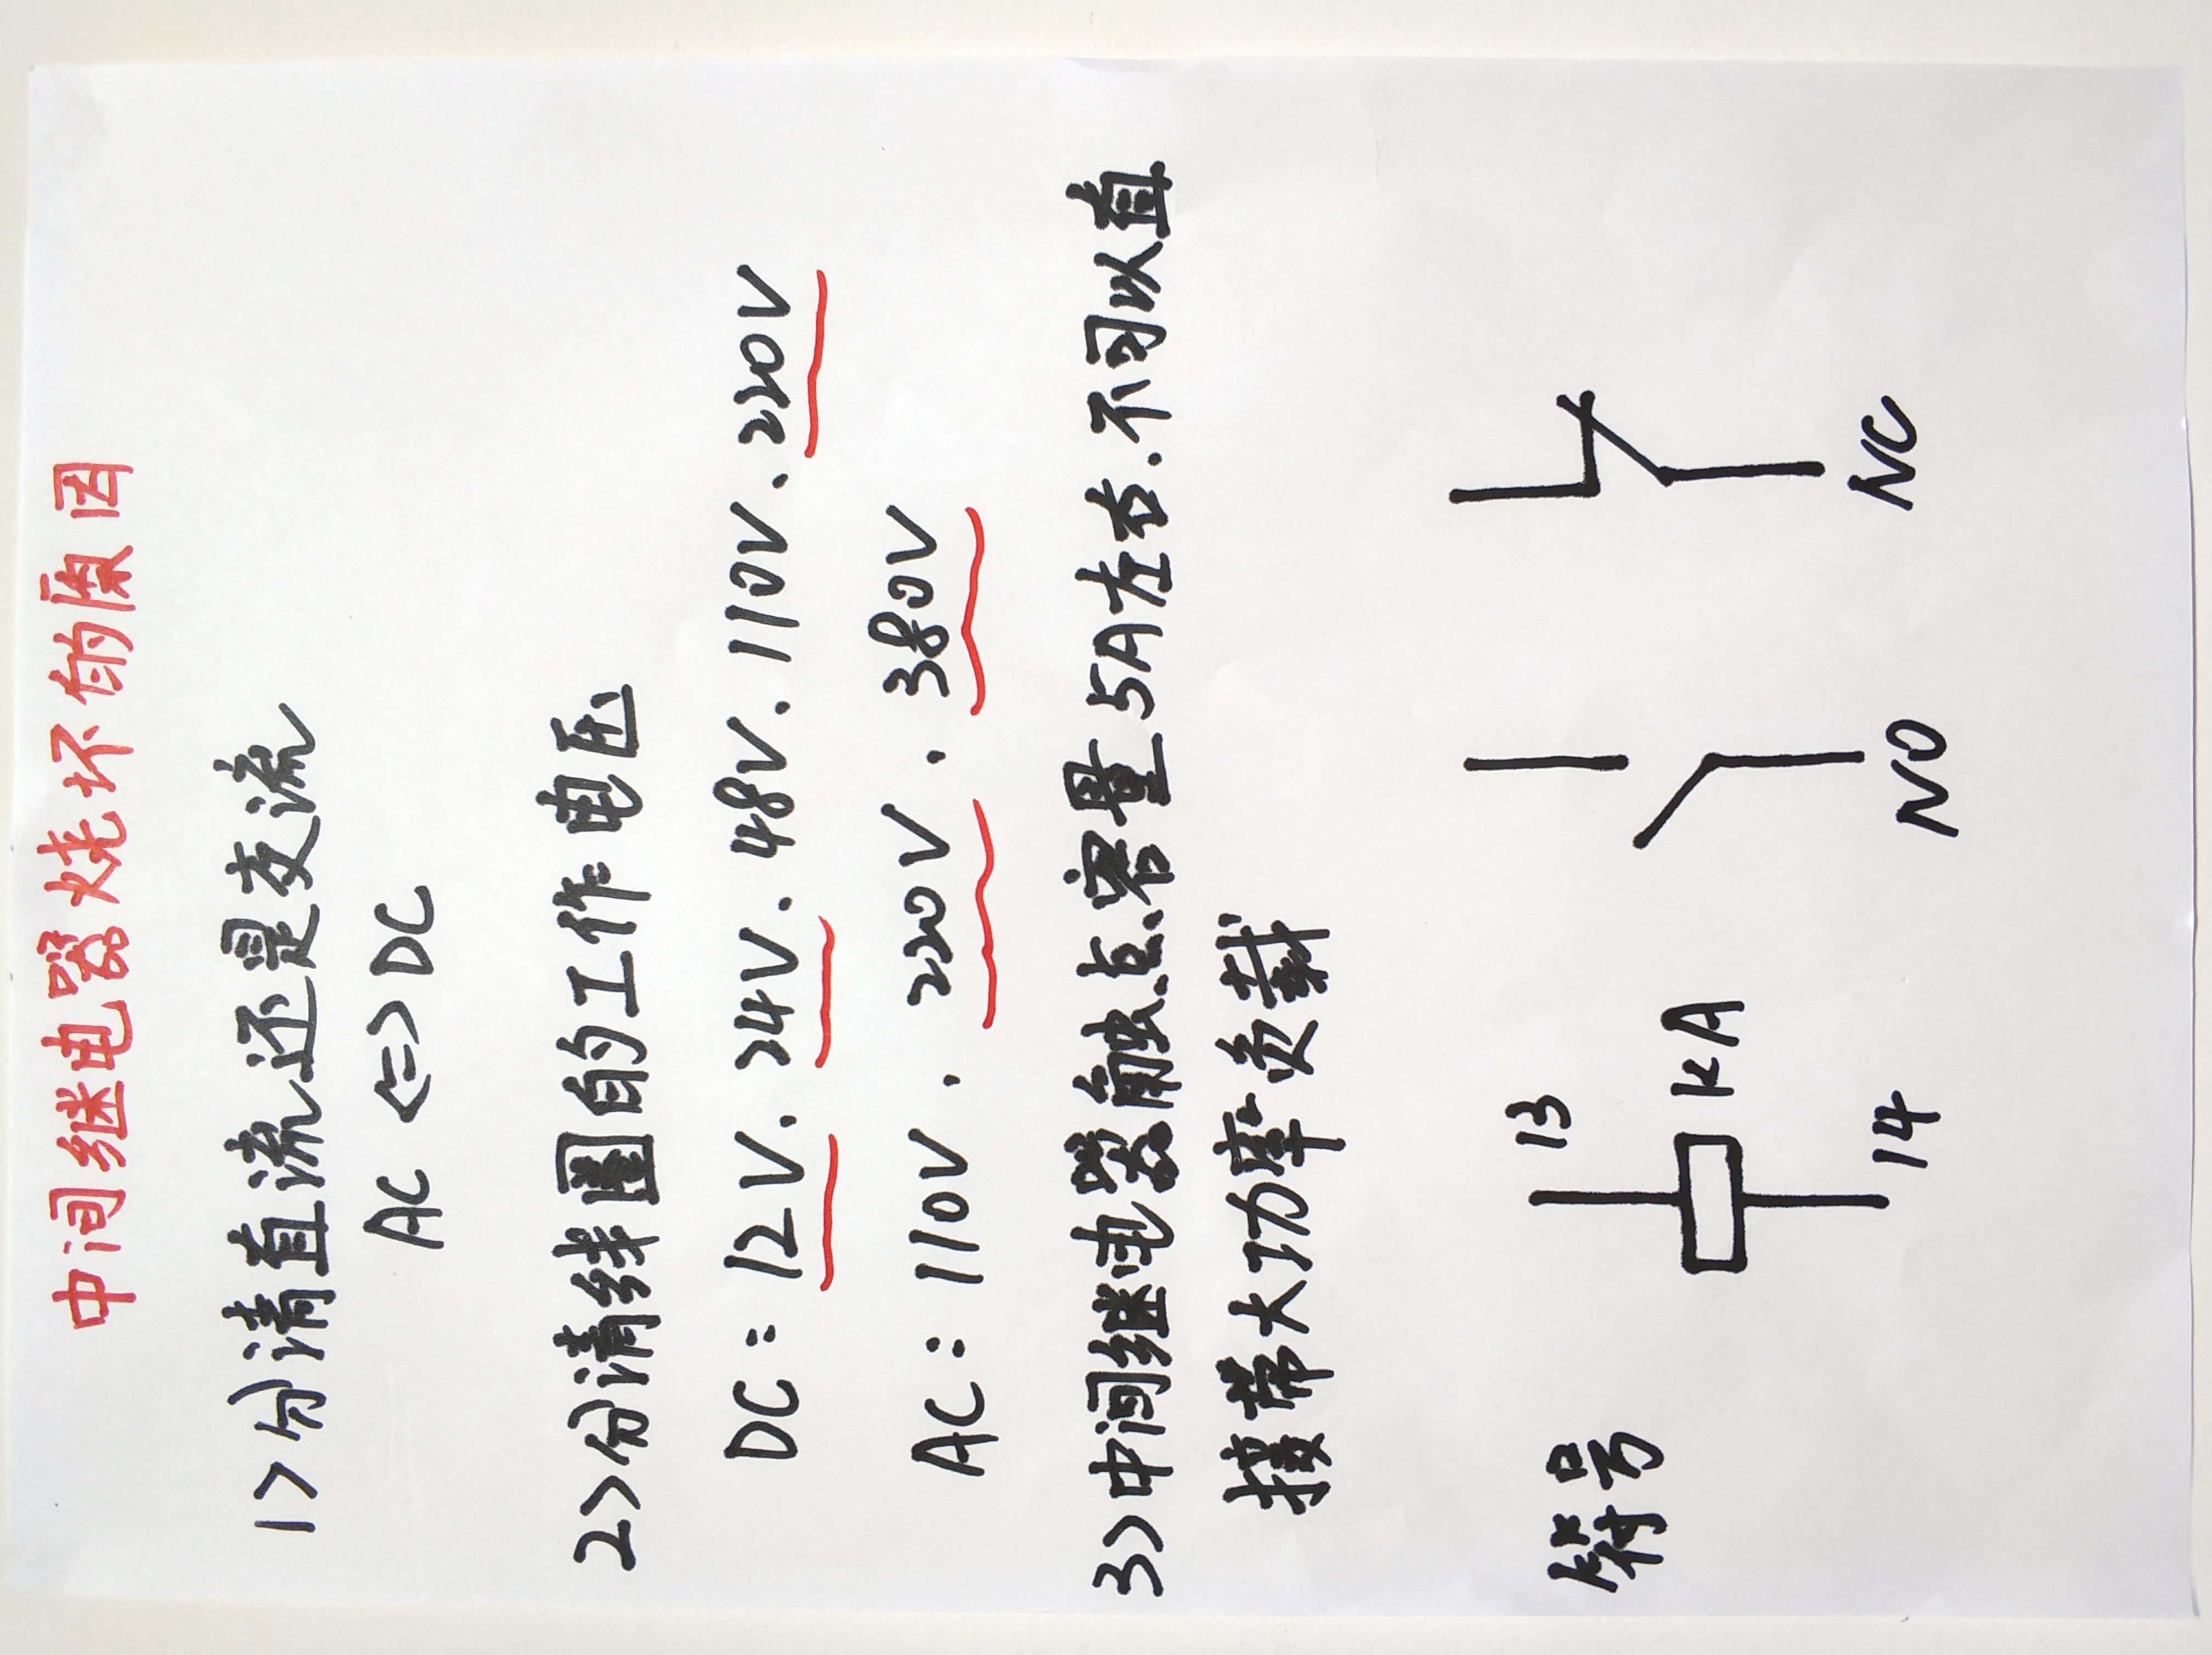 中间继电器烧坏的原因
1>分清直流还是交流
AC <=> DC
2>分清线圈的工作电压
DC: 12V. 24V. 48V. 110V. 220V
AC: 110V. 220V. 380V
3>中间继电器触点容量5A左右.不可以直
接带大功率负载
符号
13
KA
14
NO
NC